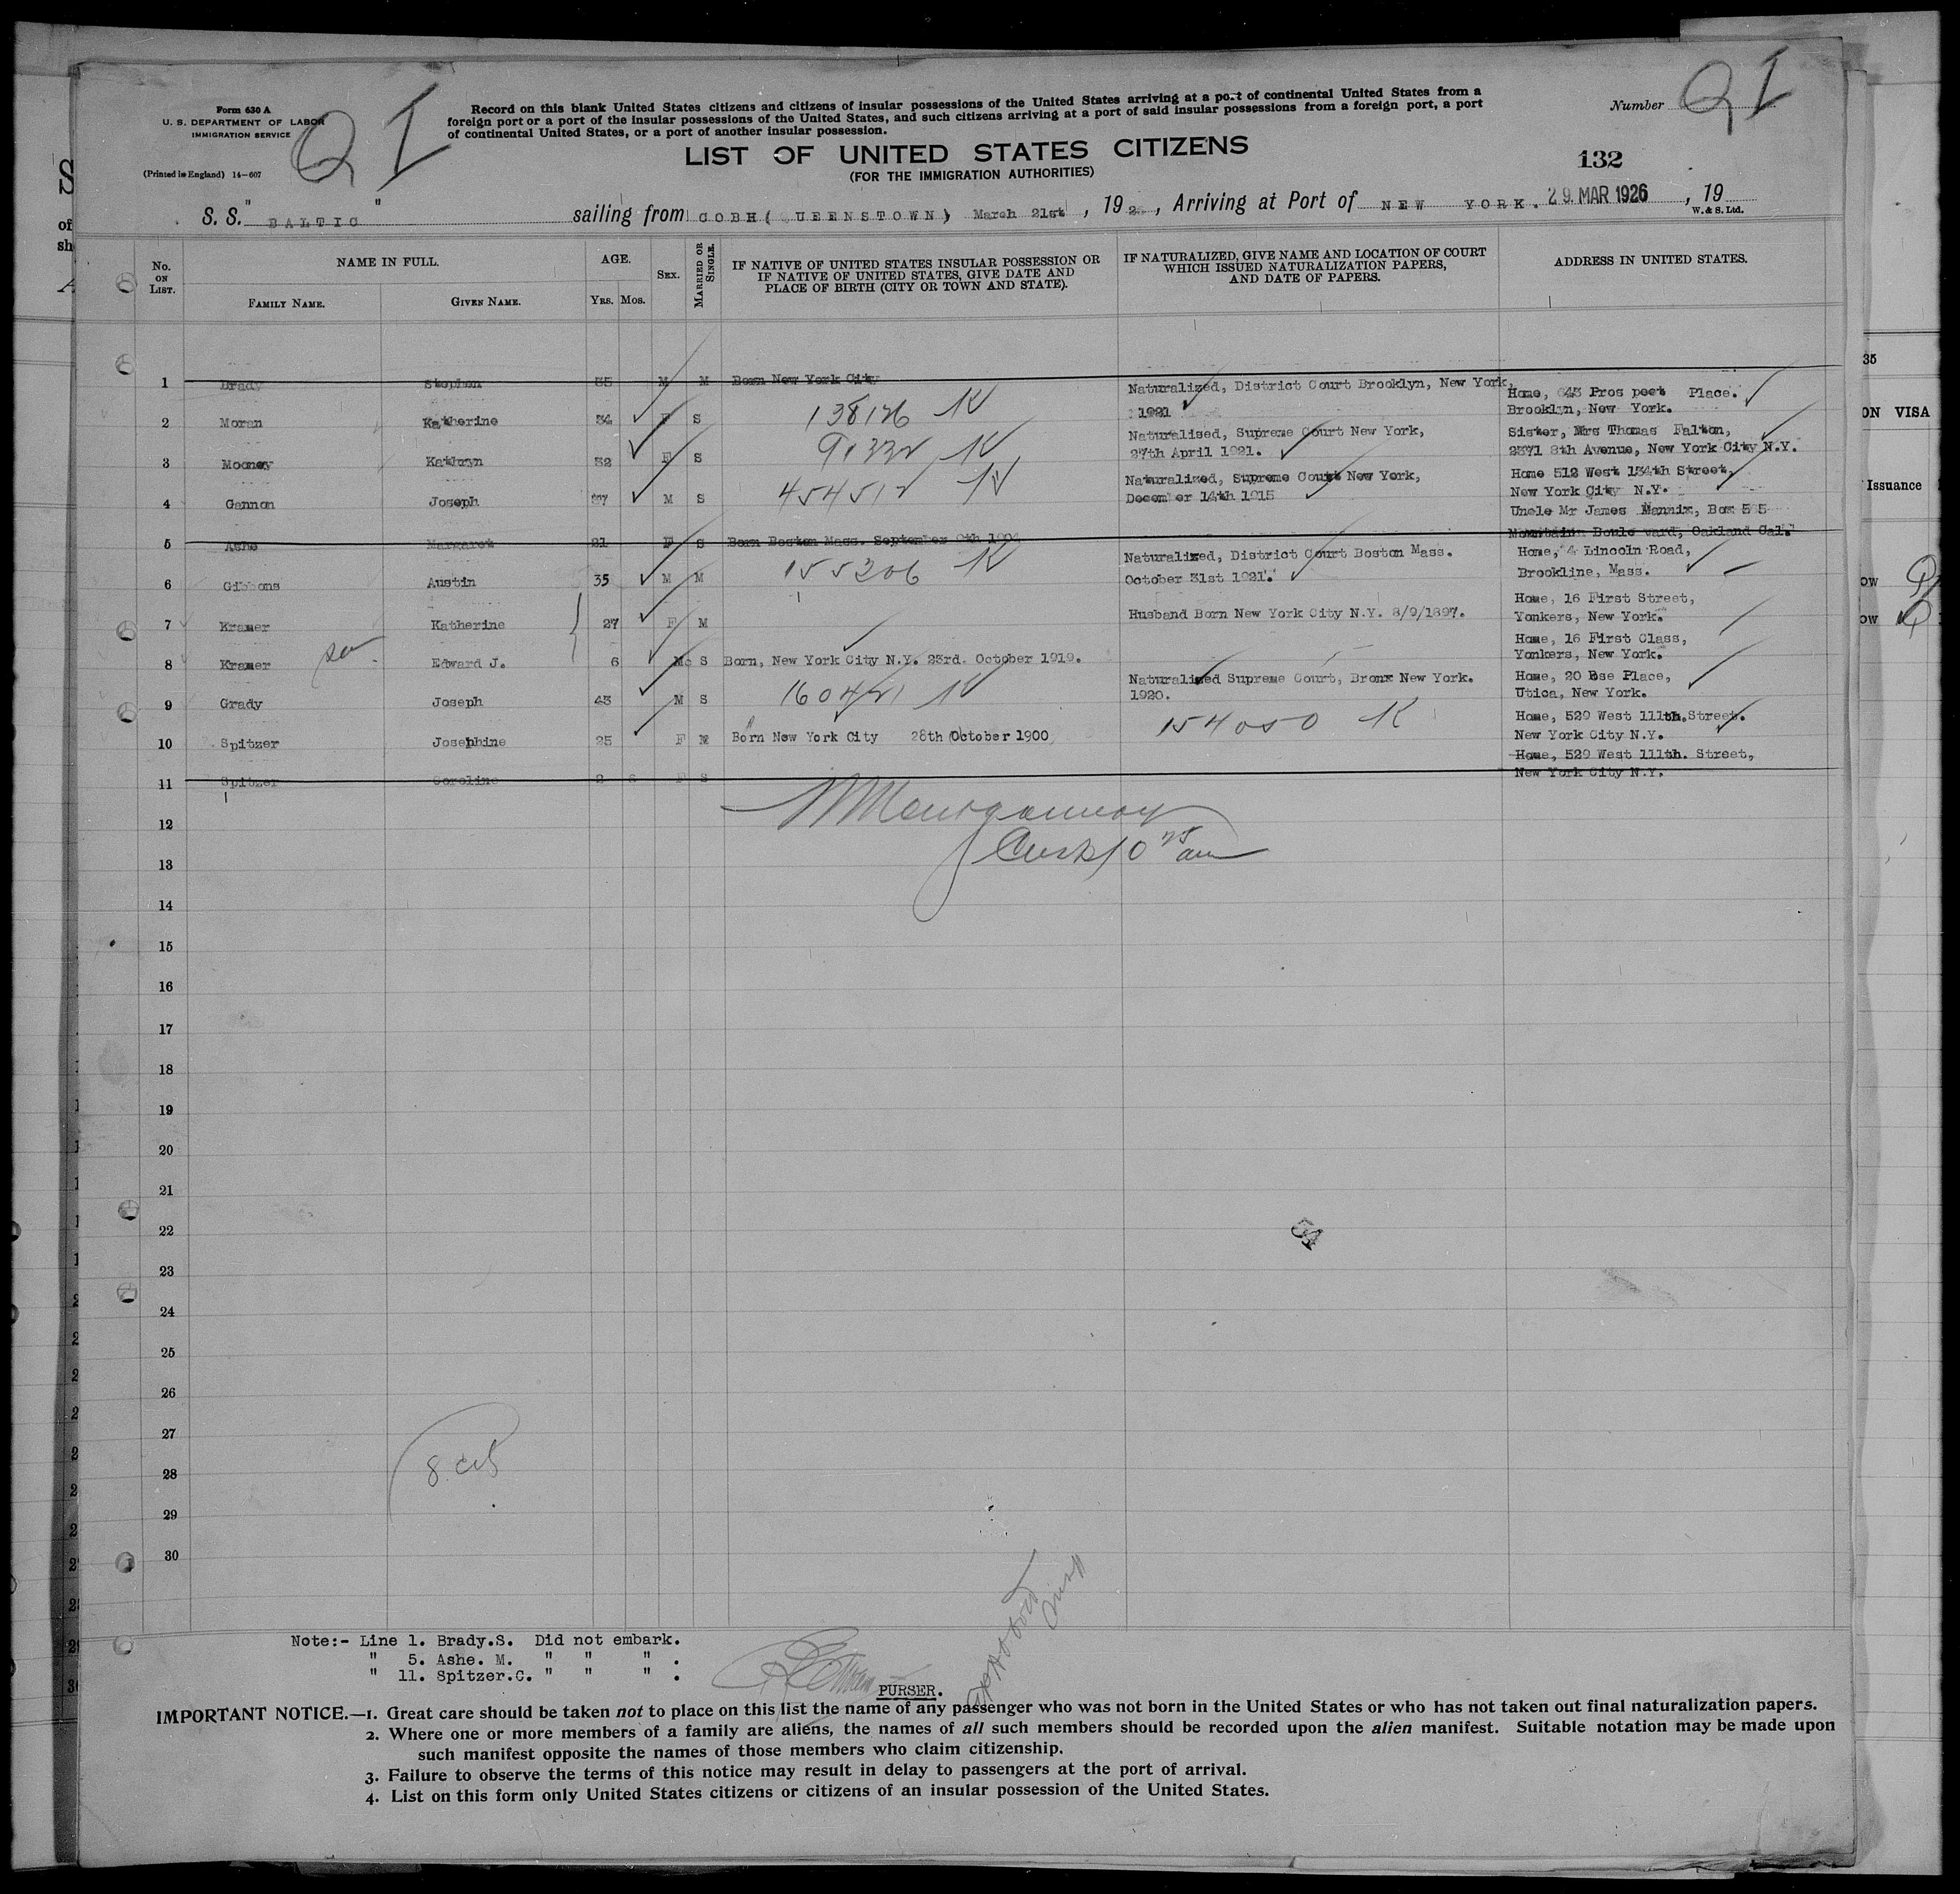 Form 630 A
U. S. DEPARTMENT OF LABOR
IMMIGRATION SERVICE
(Printed in England) 14—607
Q I
Record on this blank United States citizens and citizens of insular possessions of the United States arriving at a port of continental United States from a
foreign port or a port of the insular possessions of the United States, and such citizens arriving at a port of said insular possessions from a foreign port, a port
of continental United States, or a port of another insular possession.
Number Q I
LIST OF UNITED STATES CITIZENS
(FOR THE IMMIGRATION AUTHORITIES)
132
S. S. "BALTIC" sailing from COBH (QUEENSTOWN) March 21st, 1926, Arriving at Port of NEW YORK. 29. MAR 1926, 19
W. & S. Ltd.
No. ON LIST.
NAME IN FULL.
FAMILY NAME. GIVEN NAME.
AGE.
YRS. MOS.
SEX.
MARRIED OR SINGLE.
IF NATIVE OF UNITED STATES INSULAR POSSESSION OR
IF NATIVE OF UNITED STATES, GIVE DATE AND
PLACE OF BIRTH (CITY OR TOWN AND STATE).
IF NATURALIZED, GIVE NAME AND LOCATION OF COURT
WHICH ISSUED NATURALIZATION PAPERS,
AND DATE OF PAPERS.
ADDRESS IN UNITED STATES.
1 Brady Stephen 35 M M Born New York City
Naturalized, District Court Brooklyn, New York, Home, 643 Pros pect Place.
2 Moran Katherine 34 F S 138126 K 1921 Brooklyn, New York.
Naturalised, Supreme Court New York, Sister, Mrs Thomas Falton,
3 Mooney Kathryn 32 F S K 27th April 1921. 2371 8th Avenue, New York City N.Y.
Naturalized, Supreme Court New York, Home 512 West 134th Street,
4 Gannon Joseph 37 M S 454512 K December 14th 1915 New York City N.Y.
Uncle Mr James Mannix, Box 585
5 Ashe Margaret 21 F S Born Boston Mass. September 9th 1904 Mountain Boule vard, Oakland Cal.
Naturalized, District Court Boston Mass. Home, 4 Lincoln Road,
6 Gibbons Austin 35 M M 155206 K October 31st 1921. Brookline, Mass.
Home, 16 First Street,
7 Kramer Katherine 27 F M Husband Born New York City N.Y. 8/9/1897. Yonkers, New York.
Home, 16 First Class,
8 Kramer Edward J. 6 M S Born, New York City N.Y. 23rd. October 1919. Yonkers, New York.
Naturalized Supreme Court, Bronx New York. Home, 20 Rse Place,
9 Grady Joseph 43 M S 160421 K 1920. Utica, New York.
154050 K Home, 529 West 111th. Street.
10 Spitzer Josephine 25 F M Born New York City 28th October 1900 New York City N.Y.
Home, 529 West 111th. Street,
11 Spitzer Coroline 2 6 F S New York City N.Y.
12
Montgomery
13
14
15
16
17
18
19
20
21
22
23
24
25
26
27
28
29
30
54
Note:- Line 1. Brady.S. Did not embark.
" 5. Ashe. M. " " " .
" 11. Spitzer.C. " " " .
PURSER.
IMPORTANT NOTICE.—1. Great care should be taken not to place on this list the name of any passenger who was not born in the United States or who has not taken out final naturalization papers.
2. Where one or more members of a family are aliens, the names of all such members should be recorded upon the alien manifest. Suitable notation may be made upon
such manifest opposite the names of those members who claim citizenship.
3. Failure to observe the terms of this notice may result in delay to passengers at the port of arrival.
4. List on this form only United States citizens or citizens of an insular possession of the United States.
35
ON VISA
Issuance